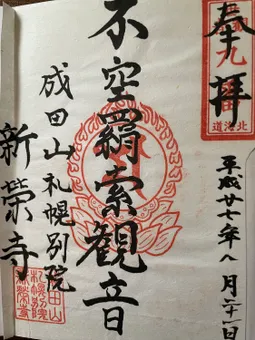 奉拝
北海道
平成廿七年八月二十一日
不空羂索觀音
成田山札幌別院
新榮寺